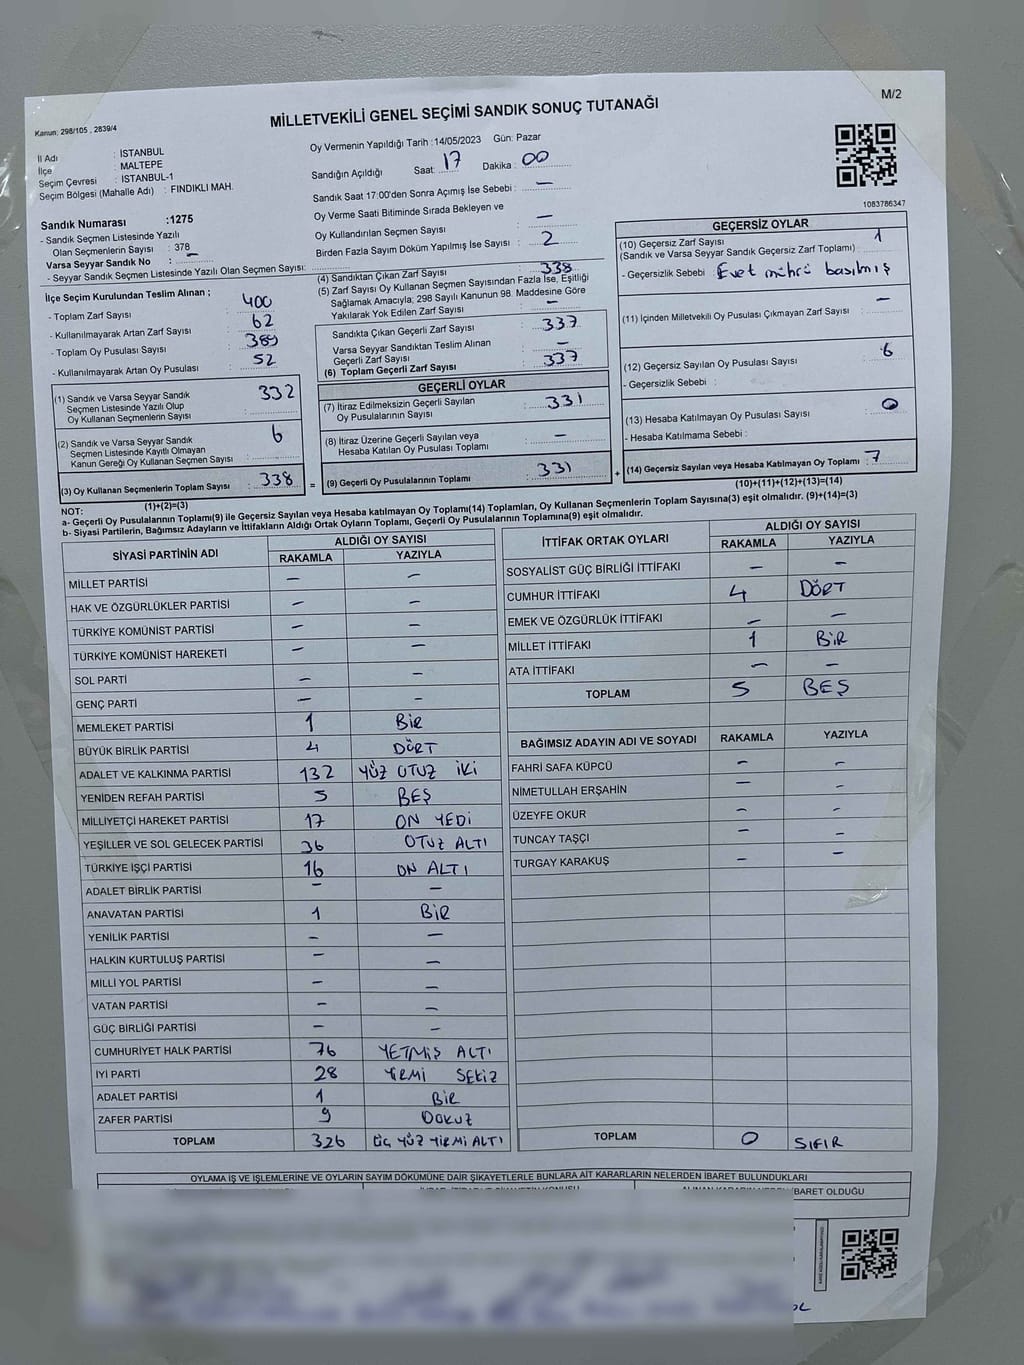 M/2
MİLLETVEKİLİ GENEL SEÇİMİ SANDIK SONUÇ TUTANAĞI
Kanun; 298/105 , 2839/4
İl Adı : İSTANBUL
İlçe : MALTEPE
Seçim Çevresi : İSTANBUL-1
Seçim Bölgesi (Mahalle Adı) : FINDIKLI MAH.
Sandık Numarası :1275
- Sandık Seçmen Listesinde Yazılı
Olan Seçmenlerin Sayısı : 378
Varsa Seyyar Sandık No : –
- Seyyar Sandık Seçmen Listesinde Yazılı Olan Seçmen Sayısı:
Oy Vermenin Yapıldığı Tarih :14/05/2023 Gün: Pazar
Sandığın Açıldığı Saat: 17 Dakika : 00
Sandık Saat 17:00'den Sonra Açımış İse Sebebi : –
Oy Verme Saati Bitiminde Sırada Bekleyen ve
Oy Kullandırılan Seçmen Sayısı : –
Birden Fazla Sayım Döküm Yapılmış İse Sayısı : 2
1083786347
İlçe Seçim Kurulundan Teslim Alınan ;
- Toplam Zarf Sayısı : 400
- Kullanılmayarak Artan Zarf Sayısı : 62
- Toplam Oy Pusulası Sayısı : 389
- Kullanılmayarak Artan Oy Pusulası : 52
(1) Sandık ve Varsa Seyyar Sandık
Seçmen Listesinde Yazılı Olup
Oy Kullanan Seçmenlerin Sayısı : 332
(2) Sandık ve Varsa Seyyar Sandık
Seçmen Listesinde Kayıtlı Olmayan
Kanun Gereği Oy Kullanan Seçmen Sayısı : 6
(3) Oy Kullanan Seçmenlerin Toplam Sayısı : 338
(1)+(2)=(3)
(4) Sandıktan Çıkan Zarf Sayısı : 338
(5) Zarf Sayısı Oy Kullanan Seçmen Sayısından Fazla İse, Eşitliği
Sağlamak Amacıyla; 298 Sayılı Kanunun 98. Maddesine Göre
Yakılarak Yok Edilen Zarf Sayısı : –
Sandıkta Çıkan Geçerli Zarf Sayısı : 337
Varsa Seyyar Sandıktan Teslim Alınan
Geçerli Zarf Sayısı : –
(6) Toplam Geçerli Zarf Sayısı : 337
GEÇERLİ OYLAR
(7) İtiraz Edilmeksizin Geçerli Sayılan
Oy Pusulalarının Sayısı : 331
(8) İtiraz Üzerine Geçerli Sayılan veya
Hesaba Katılan Oy Pusulası Toplamı : –
= (9) Geçerli Oy Pusulalarının Toplamı : 331 +
GEÇERSİZ OYLAR
(10) Geçersiz Zarf Sayısı : 1
(Sandık ve Varsa Seyyar Sandık Geçersiz Zarf Toplamı)
- Geçersizlik Sebebi : Evet mührü basılmış
(11) İçinden Milletvekili Oy Pusulası Çıkmayan Zarf Sayısı : –
(12) Geçersiz Sayılan Oy Pusulası Sayısı : 6
- Geçersizlik Sebebi :
(13) Hesaba Katılmayan Oy Pusulası Sayısı : 0
- Hesaba Katılmama Sebebi :
(14) Geçersiz Sayılan veya Hesaba Katılmayan Oy Toplamı : 7
(10)+(11)+(12)+(13)=(14)
NOT:
a- Geçerli Oy Pusulalarının Toplamı(9) ile Geçersiz Sayılan veya Hesaba katılmayan Oy Toplamı(14) Toplamları, Oy Kullanan Seçmenlerin Toplam Sayısına(3) eşit olmalıdır. (9)+(14)=(3)
b- Siyasi Partilerin, Bağımsız Adayların ve İttifakların Aldığı Ortak Oyların Toplamı, Geçerli Oy Pusulalarının Toplamına(9) eşit olmalıdır.
SİYASİ PARTİNİN ADI ALDIĞI OY SAYISI
RAKAMLA YAZIYLA
MİLLET PARTİSİ – –
HAK VE ÖZGÜRLÜKLER PARTİSİ – –
TÜRKİYE KOMÜNİST PARTİSİ – –
TÜRKİYE KOMÜNİST HAREKETİ – –
SOL PARTİ – –
GENÇ PARTİ – –
MEMLEKET PARTİSİ 1 BİR
BÜYÜK BİRLİK PARTİSİ 4 DÖRT
ADALET VE KALKINMA PARTİSİ 132 YÜZ OTUZ İKİ
YENİDEN REFAH PARTİSİ 5 BEŞ
MİLLİYETÇİ HAREKET PARTİSİ 17 ON YEDİ
YEŞİLLER VE SOL GELECEK PARTİSİ 36 OTUZ ALTI
TÜRKİYE İŞÇİ PARTİSİ 16 ON ALTI
ADALET BİRLİK PARTİSİ – –
ANAVATAN PARTİSİ 1 BİR
YENİLİK PARTİSİ – –
HALKIN KURTULUŞ PARTİSİ – –
MİLLİ YOL PARTİSİ – –
VATAN PARTİSİ – –
GÜÇ BİRLİĞİ PARTİSİ – –
CUMHURİYET HALK PARTİSİ 76 YETMİŞ ALTI
İYİ PARTİ 28 YİRMİ SEKİZ
ADALET PARTİSİ 1 BİR
ZAFER PARTİSİ 9 DOKUZ
TOPLAM 326 ÜÇ YÜZ YİRMİ ALTI
İTTİFAK ORTAK OYLARI ALDIĞI OY SAYISI
RAKAMLA YAZIYLA
SOSYALİST GÜÇ BİRLİĞİ İTTİFAKI – –
CUMHUR İTTİFAKI 4 DÖRT
EMEK VE ÖZGÜRLÜK İTTİFAKI – –
MİLLET İTTİFAKI 1 BİR
ATA İTTİFAKI – –
TOPLAM 5 BEŞ
BAĞIMSIZ ADAYIN ADI VE SOYADI RAKAMLA YAZIYLA
FAHRİ SAFA KÜPCÜ – –
NİMETULLAH ERŞAHİN – –
ÜZEYFE OKUR – –
TUNCAY TAŞÇI – –
TURGAY KARAKUŞ – –
TOPLAM 0 SIFIR
OYLAMA İŞ VE İŞLEMLERİNE VE OYLARIN SAYIM DÖKÜMÜNE DAİR ŞİKAYETLERLE BUNLARA AİT KARARLARIN NELERDEN İBARET BULUNDUKLARI
İBARET OLDUĞU